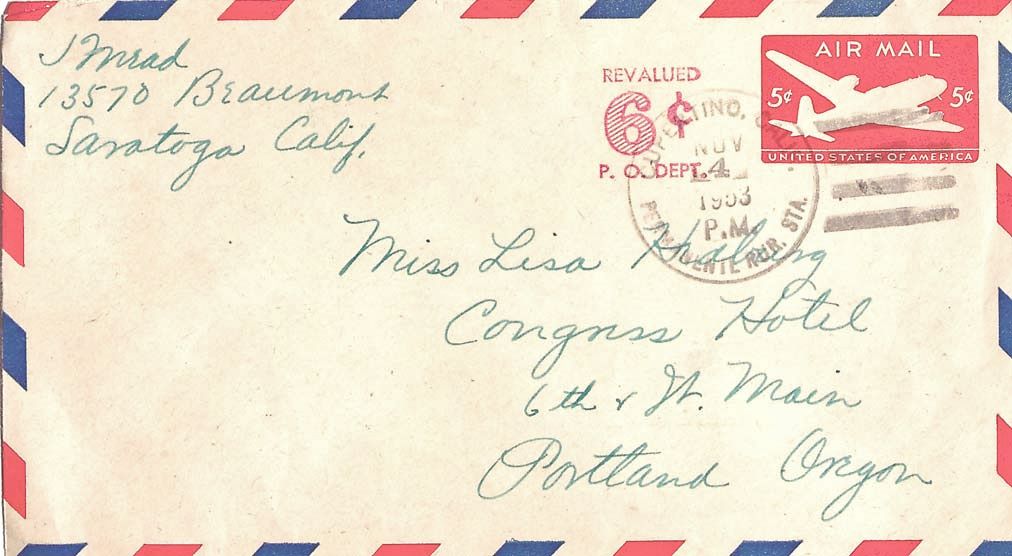 J Mrad
13570 Beaumont
Saratoga Calif.
REVALUED
6¢
P. O. DEPT.
AIR MAIL
5¢ 5¢
UNITED STATES OF AMERICA
CUPERTINO, CALIF.
NOV
4
1953
P.M.
PERMANENTE RUR. STA.
Miss Lisa
Congress Hotel
6th & W. Main
Portland Oregon